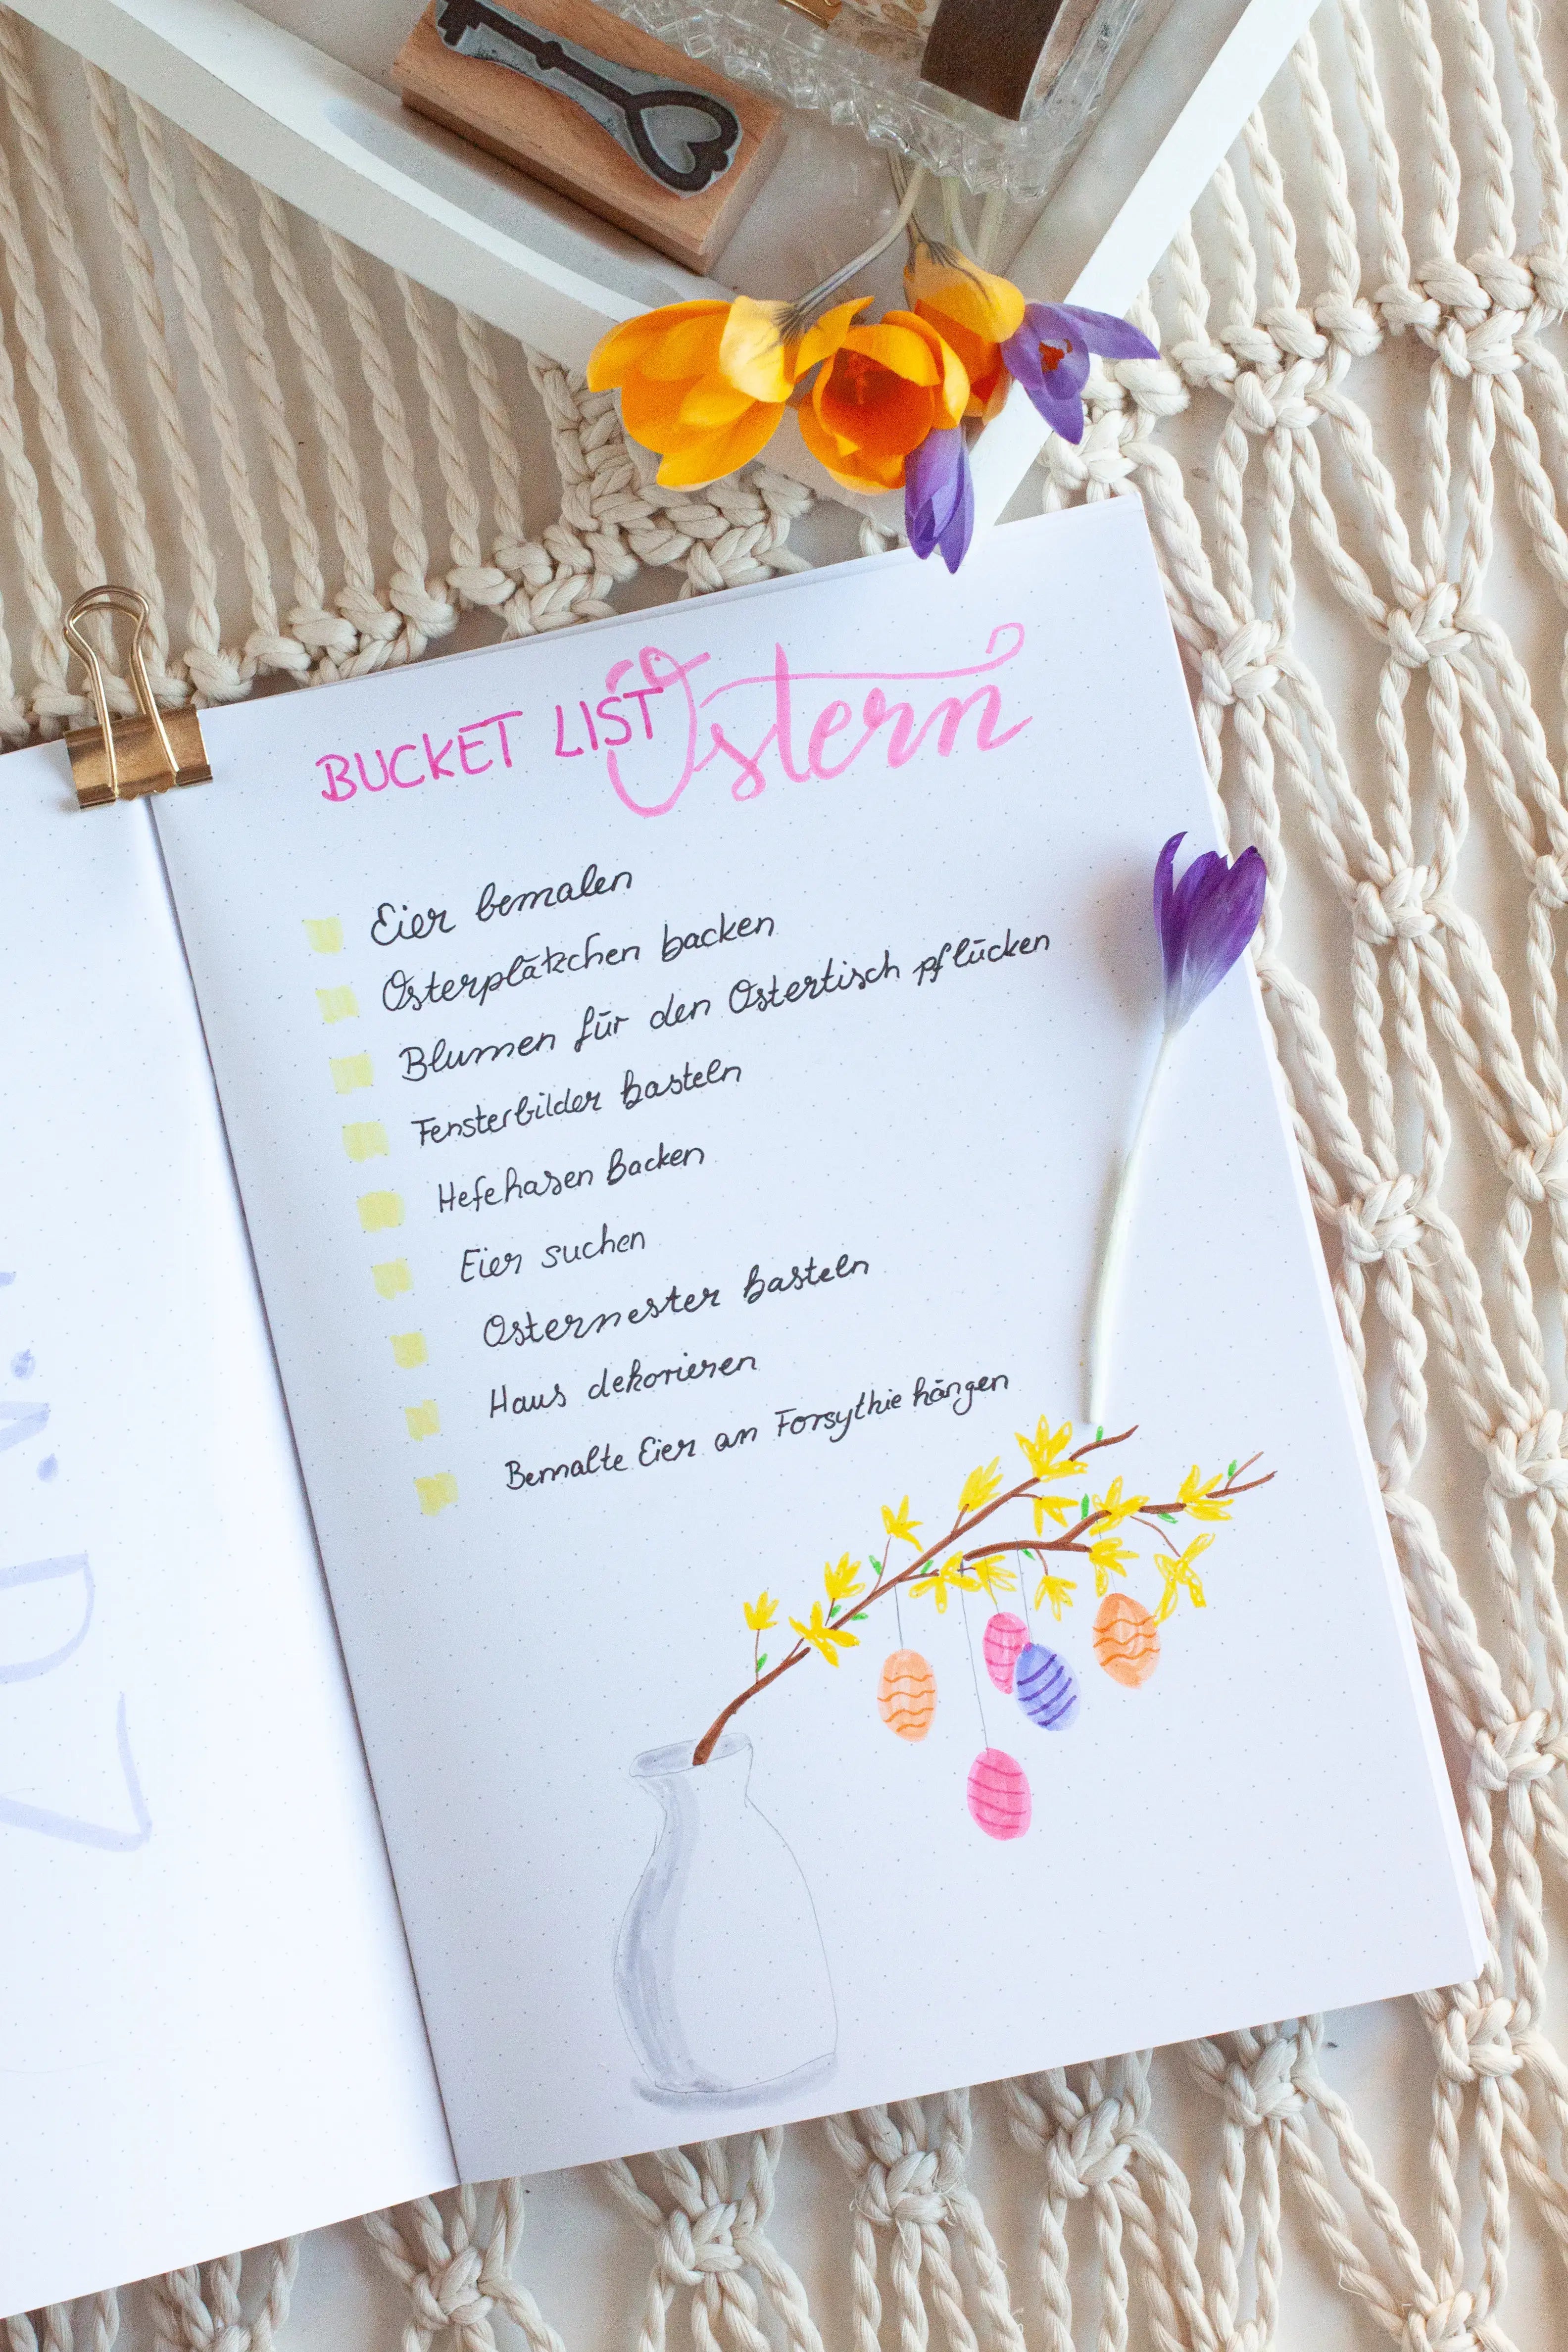 BUCKET LIST Ostern
Eier bemalen
Osterplätzchen backen
Blumen für den Ostertisch pflücken
Fensterbilder basteln
Hefehasen backen
Eier suchen
Osternester basteln
Haus dekorieren
Bemalte Eier an Forsythie hängen